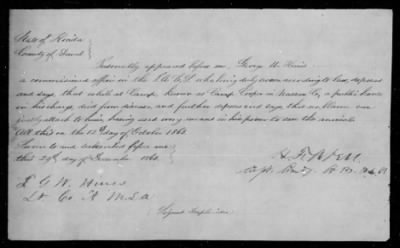 State of Florida
County of Duval
Personally appeared before me George W. Hines
a commissioned officer in the C.S. who being duly sworn according to law, deposes
and says, that while at Camp, known as Camp Cooper in Nassau Co, a public horse
in his charge, died from disease, and further deposes and says that no blame can
justly attach to him, having used every means in his power to save the animal
All this on the 12th day of October 1862.
Sworn to and subscribed before me
this 29th day of December 1862
G W Hines
Lt Co
Signed Duplicates